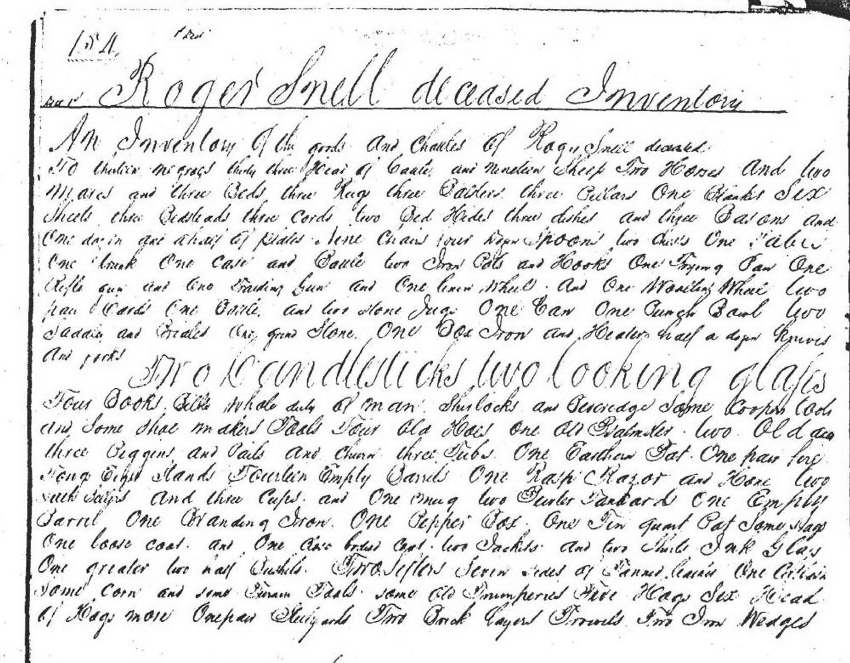 154
Roger Snell deceased Inventory
An Inventory of the goods and Chattles of Roger Snell deceased
To thirteen negroes thirty three Head of Cattle and Nineteen Sheep Two Horses And two
Mares and three Beds three Rugs three Bolsters three Pillars One Blanket Six
Sheets three Bedsteads three Cords two Bed Hides three dishes and three Basons and
One dozen and a half of plates Nine Chairs four dozen Spoons two Chests One Table
One trunk One Case and Bottle two Iron Pots and Hooks One Frying Pan One
Rifle gun and two Trading Gun and One linen wheel And One Woollen Wheel two
pair Cards One Bottle and two stone Jugs One Can One Punch Bowl two
Saddles and Bridles One grind Stone One Box Iron and Heater half a dozen knives
And forks
Two Candlesticks two looking glasses
Four Books Bible Whole duty of man Sherlocks and Some Coopers tools
and Some Shoe makers Tools Four Old Hoes one Old two Old
three Piggins and Pails and Churn three Tubs One Earthen Pot One pair fire
Tongs Eight Stands Fourteen Empty Barrels One Rasp Razor and Hone two
and three Cups and One mug two Pewter Tankards One Empty
Barril One Branding Iron One Pepper Box One Tin quart Pot Some Bags
One loose coat and One bodied Coat two Jackets and two Shirts Ink Glass
One greater two half Bushels Two Sifters Seven sides of Tanned leather One
Some Corn and some Turners Tools some Old Trumperies Five Hogs Six Head
of Hogs more One pair Stilyards Two Brick layers Trowels Two Iron Wedges